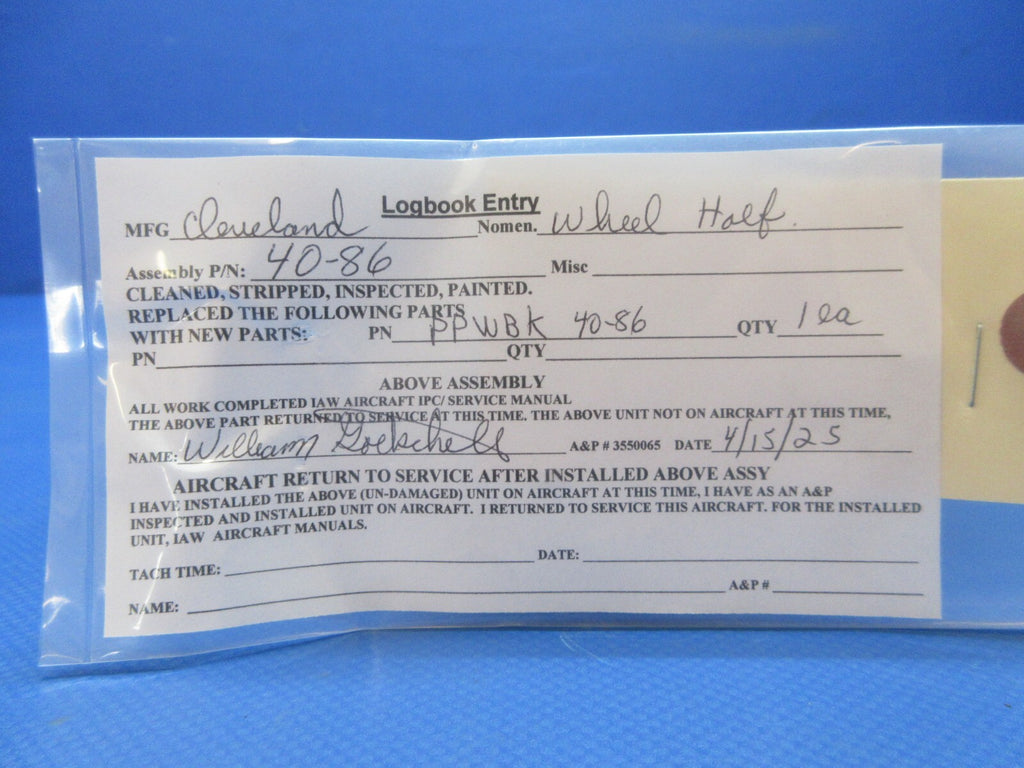 Logbook Entry
MFG Cleveland Nomen. Wheel Half.
Assembly P/N: 40-86 Misc
CLEANED, STRIPPED, INSPECTED, PAINTED.
REPLACED THE FOLLOWING PARTS
WITH NEW PARTS: PN PPWBK 40-86 QTY 1 ea
PN QTY
ABOVE ASSEMBLY
ALL WORK COMPLETED IAW AIRCRAFT IPC/ SERVICE MANUAL
THE ABOVE PART RETURNED TO SERVICE AT THIS TIME. THE ABOVE UNIT NOT ON AIRCRAFT AT THIS TIME,
NAME: William A&P # 3550065 DATE 4/15/25
AIRCRAFT RETURN TO SERVICE AFTER INSTALLED ABOVE ASSY
I HAVE INSTALLED THE ABOVE (UN-DAMAGED) UNIT ON AIRCRAFT AT THIS TIME, I HAVE AS AN A&P
INSPECTED AND INSTALLED UNIT ON AIRCRAFT. I RETURNED TO SERVICE THIS AIRCRAFT. FOR THE INSTALLED
UNIT, IAW AIRCRAFT MANUALS.
TACH TIME: DATE:
NAME: A&P #